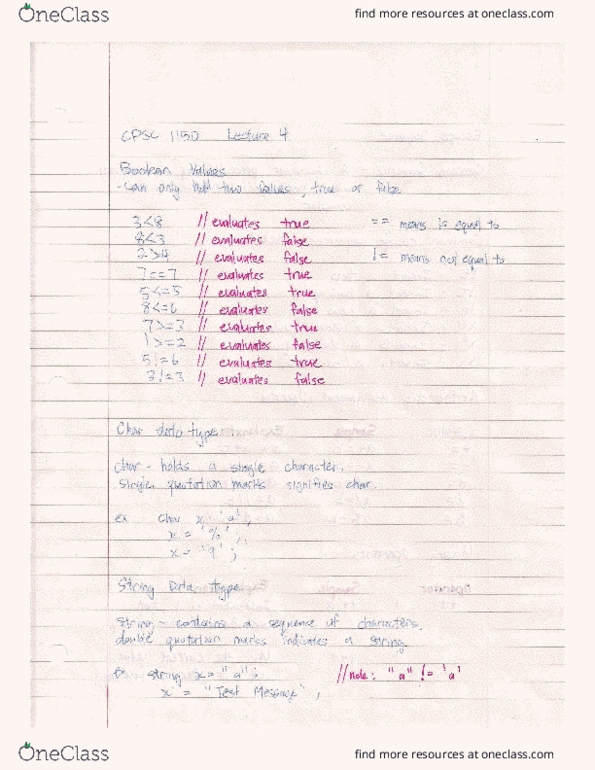 OneClass
find more resources at oneclass.com
CPSC 1150 Lecture 4
Boolean Values
- Can only hold two values, true or false
3<8 // evaluates true
== means is equal to
8<3 // evaluates false
2>4 // evaluates false
!= means not equal to
7==7 // evaluates true
5<=5 // evaluates true
8<=6 // evaluates false
7>=3 // evaluates true
1>=2 // evaluates false
5!=6 // evaluates true
3!=3 // evaluates false
Char data type
char - holds a single character.
Single quotation marks signifies char.
ex char x = 'a';
x = '%';
x = '9';
String Data type
String - contains a sequence of characters.
double quotation marks indicates a string.
Ex string x = "a";
//note: "a" != 'a'
x = "Test Message";
OneClass
find more resources at oneclass.com